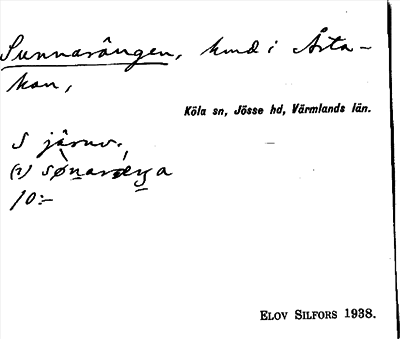 Sunnarängen, hmd i Årta-
kan,
Köla sn, Jösse hd, Värmlands län.
S järnv.
(2)
10:-
ELOV SILFORS 1938.